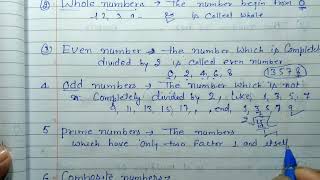 (2) Whole numbers → The number begin from 0
1 2, 3, is called whole
(3) Even number → the number which is completely
divided by 2 is called even number
0, 2, 4, 6, 8 13578
4 Odd numbers → The number which is not
Completely divided by 2, Like, 1, 3, 5, 7
9, 11, 13, 15, 17, , end, 1, 3, 5, 7, 9
5 prime numbers → The numbers
which have only two factor 1 and itself
6 Composite numbers →